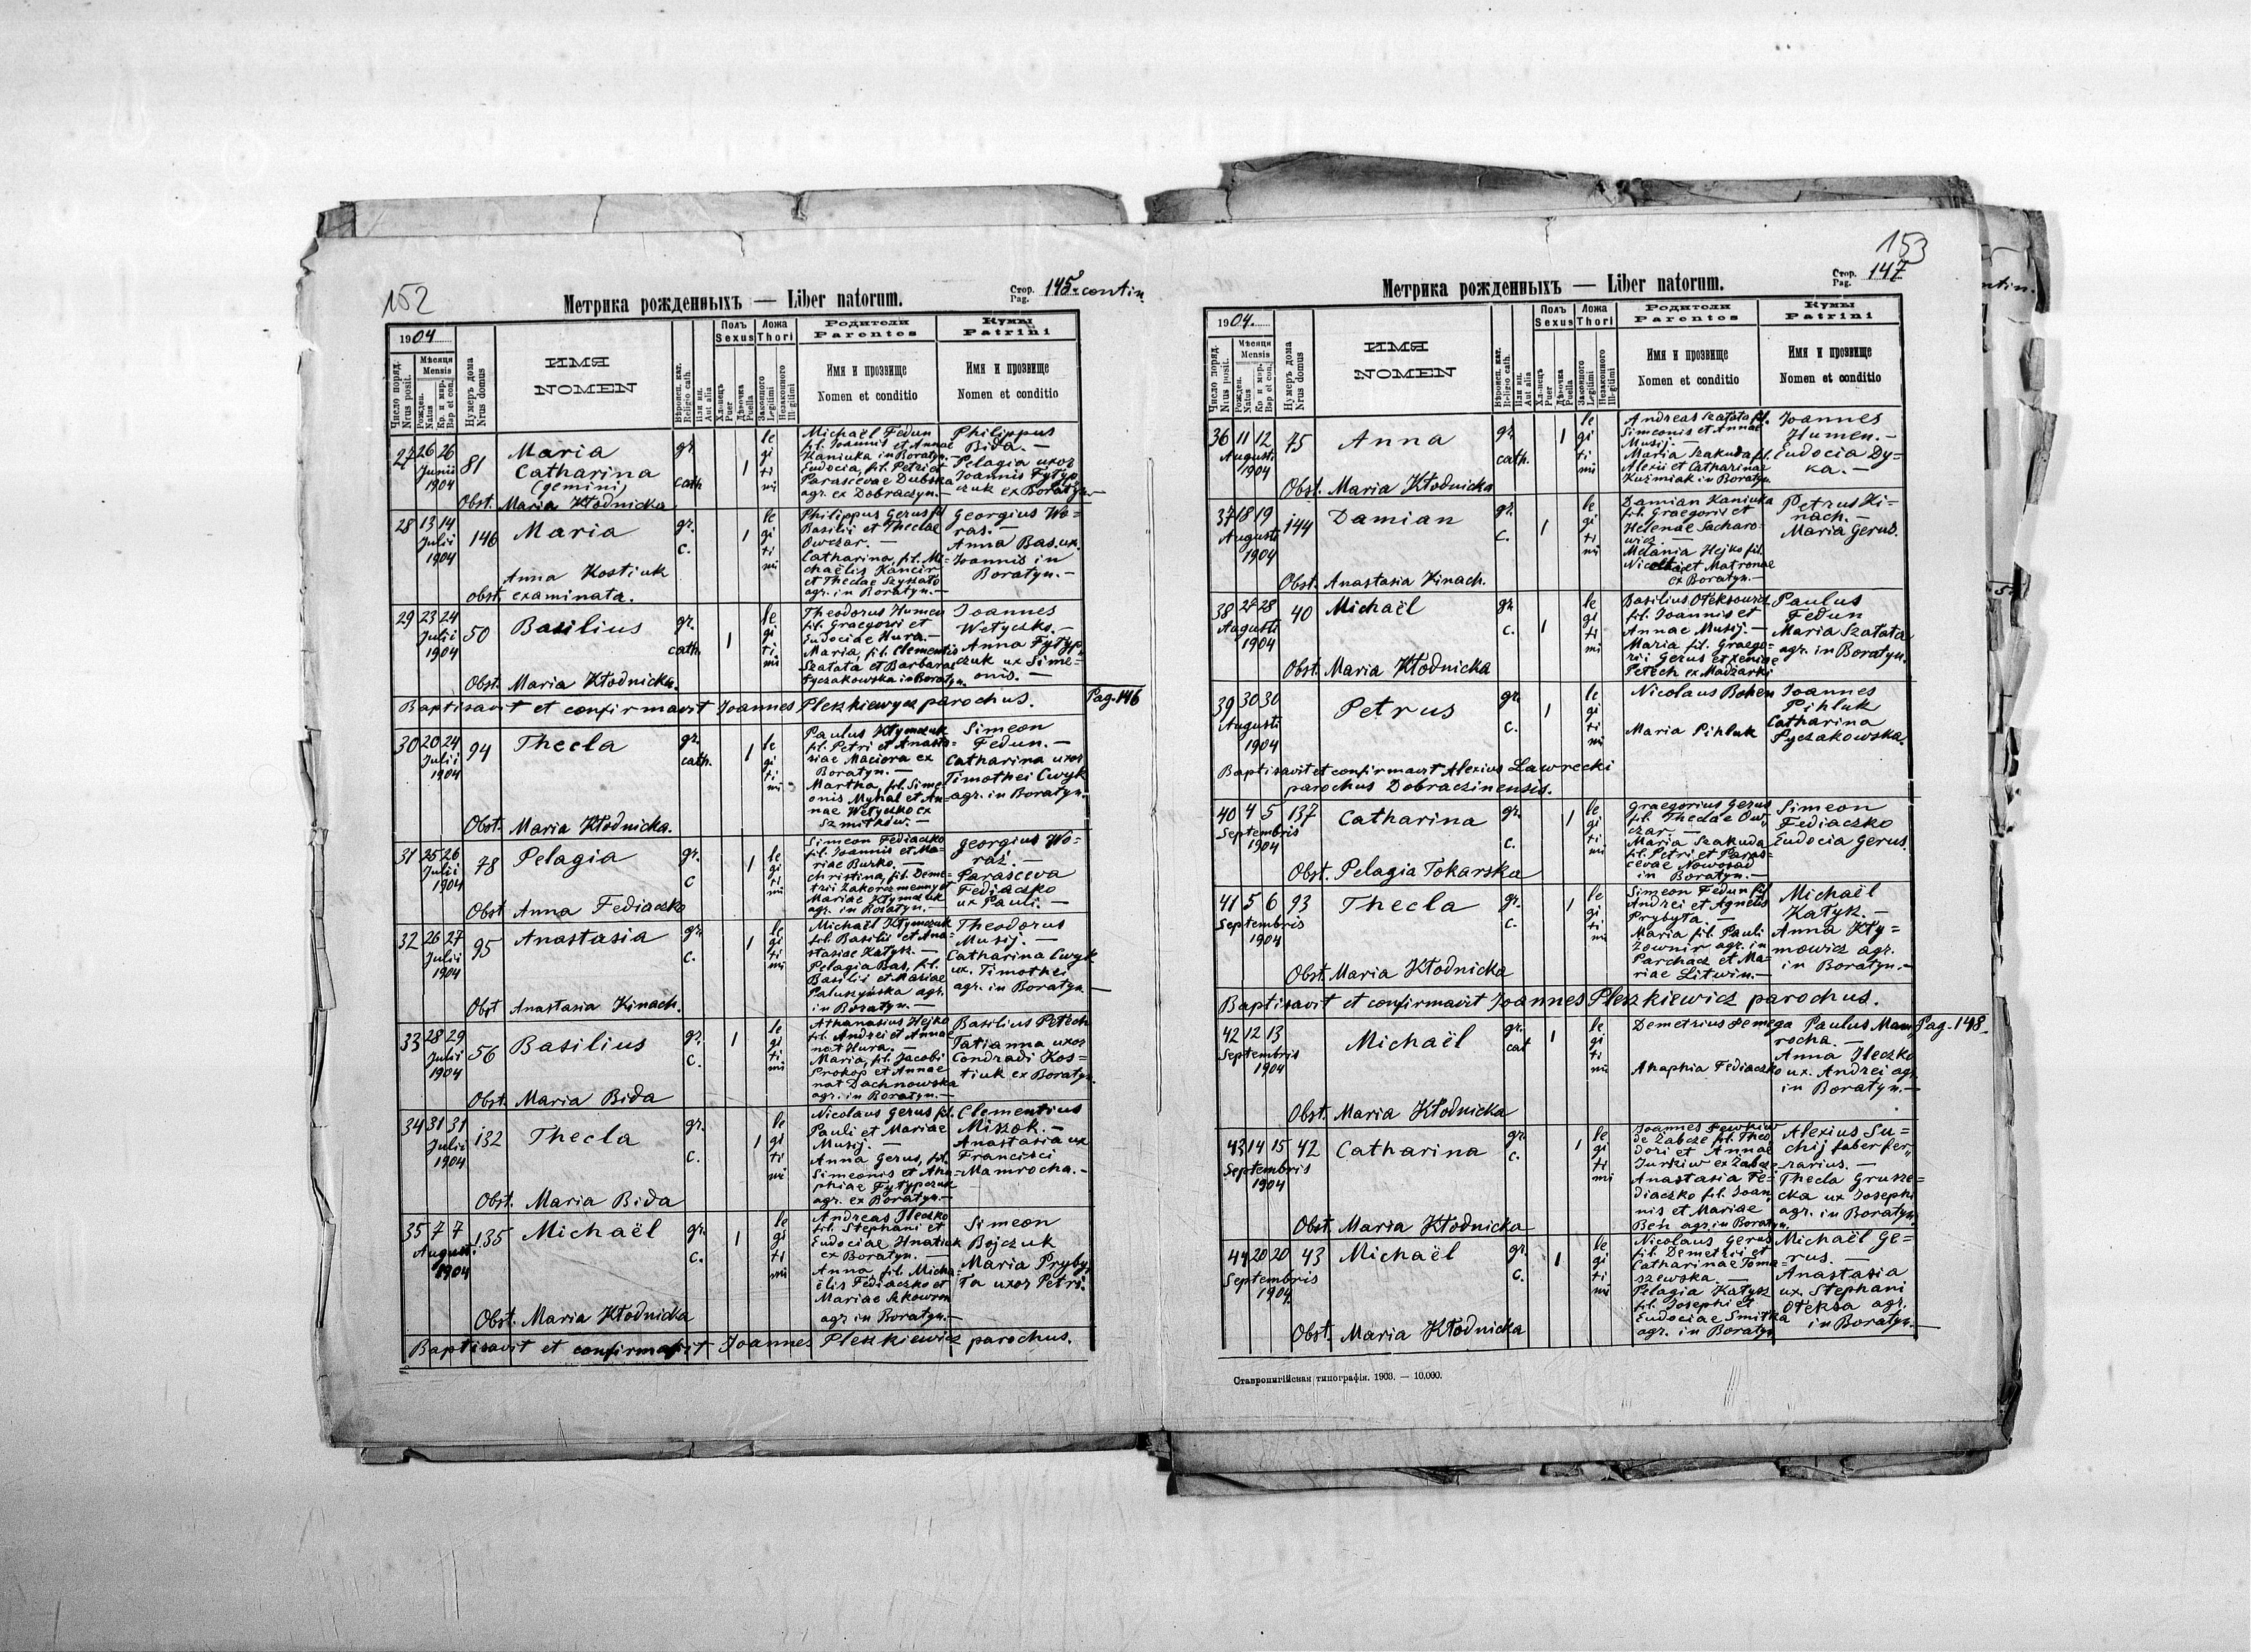 152
Метрика рожденныхъ — Liber natorum.
Стор. Pag. 145. contin.
1904
Число поряд. Nrus posit.
Мѣсяця Mensis
Рожден. Natus
Кр. и мѵр. Bap et con.
Нумеръ дома Nrus domus
ИМЯ
NOMEN
Вѣроисп. кат. Religio cath.
Или ин. Aut alia
Полъ Sexus
Хлопецъ Puer
Дѣвочка Puella
Ложа Thori
Законного Legitimi
Незаконного Illegitimi
Родители Parentes
Имя и прозвище
Nomen et conditio
Кумы Patrini
Имя и прозвище
Nomen et conditio
27 26 26 Junii 1904
81
Maria
Catharina
(gemini)
gr. cath.
1
legitimi
Michaël Fedun
fil. Joannis et Annae
Kaniuka in Boratyn.—
Eudocia, fil. Petri et
Parascevae Dubska
agr. ex Dobraczyn.—
Philippus
Bida.—
Pelagia uxor
Joannis Fytyp
czuk ex Boratyn.—
Obst. Maria Kłodnicka
28 13 14 Julii 1904
146
Maria
gr. c.
1
legitimi
Philippus Gerus fil
Basilii et Theclae
Owczar.—
Catharina, fil. Mi=
chaëlis Kancir
et Theclae Szyszato
agr. in Boratyn.—
Georgius Wo=
ras.—
Anna Bas. ux.
Joannis in
Boratyn.—
Anna Kostiuk
obst. examinata.
29 23 24 Julii 1904
50
Basilius
gr. cath.
1
legitimi
Theodorus Humen
fil. Graegorii et
Eudociae Hura.—
Maria, fil. Clementis
Szatata et Barbarae
Pyczakowska in Boratyn.
Joannes
Wetyczko.—
Anna Fytyp
czuk ux Sime=
onis.—
Obst. Maria Kłodnicka.
Baptisavit et confirmavit Joannes Pleszkiewycz parochus.
Pag. 146
30 20 24 Julii 1904
94
Thecla
gr. cath.
1
legitimi
Paulus Kłymczuk
fil. Petri et Anasta=
siae Maciora ex
Boratyn.—
Martha, fil. Sime
onis Myhal et An=
nae Wetyczko ex
Szmitków.—
Simeon
Fedun.—
Catharina uxor
Timothei Cwyk
agr. in Boratyn.
Obst. Maria Kłodnicka.
31 25 26 Julii 1904
78
Pelagia
gr. c
1
legitimi
Simeon Fediaczko
fil. Joannis et Ma=
riae Burko.—
Christina, fil. Deme=
trii Zakorczmennyj et
Mariae Kłymczuk
agr. in Boratyn.—
Georgius Wo=
ras.—
Parasceva
Fediaczko
ux Pauli.—
Obst Anna Fediaczko
32 26 27 Julii 1904
95
Anastasia
gr. c.
1
legitimi
Michaël Kłymczuk
fil. Basilii et Ana=
stasiae Katysz.—
Pelagia Bas, fil.
Basilii et Mariae
Patuszyńska agr.
in Boratyn.—
Theodorus
Musij.—
Catharina Cwyk
ux. Timothei
agr. in Boratyn—
Obst Anastasia Kinach.
33 28 29 Julii 1904
56
Basilius
gr. c.
1
legitimi
Athanasius Hejko
fil. Andrei et Annae
nat Hura.—
Maria, fil. Jacobi
Prokop et Annae
nat Dachnowska
agr. in Boratyn.—
Basilius Petech
Tatianna uxor
Condradi Kos=
tiuk ex Boratyn.
Obst. Maria Bida
34 31 31 Julii 1904
132
Thecla
gr. c.
1
legitimi
Nicolaus Gerus fil.
Pauli et Mariae
Musij.—
Anna Gerus, fil.
Simeonis et Aha=
phiae Fytypczuk
agr. ex Boratyn.—
Clementius
Miszok.—
Anastasia ux
Francisci
Mamrocha.—
Obst. Maria Bida
35 7 7 August. 1904
135
Michaël
gr. c.
1
legitimi
Andreas Ileczko
fil. Stephani et
Eudociae Hnatiuk
ex Boratyn.—
Anna, fil. Micha
ëlis Fediaczko et
Mariae
agr in Boratyn.—
Simeon
Bojczuk
Maria Pryby
ta uxor Petri.
Obst. Maria Kłodnicka
Baptisavit et confirmavit Joannes Pleszkiewicz parochus.
153
Метрика рожденныхъ — Liber natorum.
Стор. Pag. 147
1904.
Число поряд. Nrus posit.
Мѣсяця Mensis
Рожден. Natus
Кр. и мѵр. Bap et con.
Нумеръ дома Nrus domus
ИМЯ
NOMEN
Вѣроисп. кат. Religio cath.
Или ин. Aut alia
Полъ Sexus
Хлопецъ Puer
Дѣвочка Puella
Ложа Thori
Законного Legitimi
Незаконного Illegitimi
Родители Parentes
Имя и прозвище
Nomen et conditio
Кумы Patrini
Имя и прозвище
Nomen et conditio
36 11 12 August. 1904
75
Anna
gr. cath.
1
legitimi
Andreas Szatata fil.
Simeonis et Annae
Musij.—
Maria Szakuda fil.
Alexii et Catharinae
Kuźmiak in Boratyn
Joannes
Humen.—
Eudocia Dy=
ka.—
Obst. Maria Kłodnicka
37 18 19 Augusti 1904
144
Damian
gr. c.
1
legitimi
Damian Kaniuka
fil. Graegorii et
Helenae Sacharo=
wicz.—
Melania Hejko fil.
Nicolai et Matronae
ex Boratyn.—
Petrus Ki=
nach.—
Maria Gerus.
Obst. Anastasia Kinach.
38 27 28 Augusti 1904
40
Michaël
gr. c.
1
legitimi
Basilius Oteksowicz
fil. Joannis et
Annae Musij.—
Maria fil. Graego=
rii Gerus et Xeniae
Petech ex Madżarki
Paulus
Fedun
Maria Szatata
agr. in Boratyn.
Obst. Maria Kłodnicka
39 30 30 Augusti 1904
Petrus
gr. c.
1
legitimi
Nicolaus Bohen
Maria Pihluk
Joannes
Pihluk
Catharina
Pyczakowska.
Baptisavit et confirmavit Alexius Lawrecki
parochus Dobraczinensis.
40 4 5 Septembris 1904
137
Catharina
gr. c.
1
legitimi
Graegorius Gerus
fil. Theclae Ow
czar—
Maria Szakuda
fil. Petri et Paras=
cevae Nowosad
in Boratyn.—
Simeon
Fediaczko
Eudocia Gerus.
Obst. Pelagia Tokarska
41 5 6 Septembris 1904
93
Thecla
gr. c.
1
legitimi
Simeon Fedun fil
Andrei et Agnetis
Prybyta.—
Maria fil. Pauli
Żownir agr. in
Parchacz et Ma=
riae Litwin.—
Michaël
Katyk.—
Anna Kły=
mowicz agr.
in Boratyn.—
Obst. Maria Kłodnicka
Baptisavit et confirmavit Joannes Pleszkiewicz parochus.
Pag. 148.
42 12 13 Septembris 1904
Michaël
gr. cat
1
legitimi
Demetrius Femega
Ahaphia Fediaczko
Paulus Mam
rocha.—
Anna Ileczko
ux. Andrei agr.
in Boratyn.—
Obst. Maria Kłodnicka
43 14 15 Septembris 1904
42
Catharina
gr. c.
1
legitimi
Joannes
de Zabcze fil. Theo
dori et Annae
Jurkiw ex Zabcze
Anastasia Fe=
diaczko fil. Joan
nis et Mariae
Beń agr. in Boratyn.
Alexius Su=
chij faber fer,,
rarius.—
Thecla Grusze=
cka ux Josephi
agr. in Boratyn
Obst. Maria Kłodnicka
44 20 20 Septembris 1904.
43
Michaël
gr. c.
1
legitimi
Nicolaus Gerus
fil. Demetrii et
Catharinae Toma=
szewska.—
Pelagia Katysz
fil. Josephi et
Eudociae Smitka
agr. in Boratyn
Michaël Ge=
rus.—
Anastasia
ux Stephani
Oteksa agr.
in Boratyn.—
Obst. Maria Kłodnicka
Ставропигійская типографія. 1903. — 10.000.